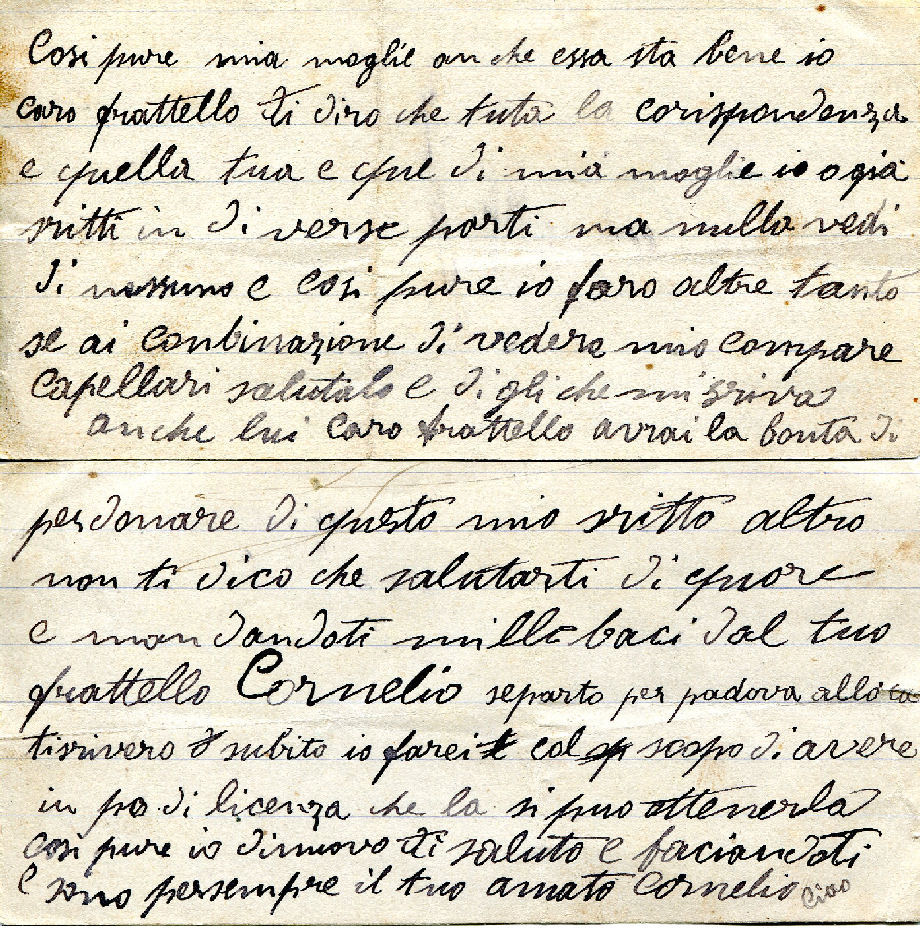 Cosi pure mia moglie anche essa sta bene io
caro frattello ti diro che tuta la corispondenza
e quella tua e que di mia moglie io o già
sritti in di verse parti ma nulla vedi
di nessuno e cosi pure io faro altre tanto
se ai conbinazione di vedere mio compare
Capellari salutalo e digli che mi sriva
anche lui caro frattello avrai la bontà di
perdonare di questo mio sritto altro
non ti dico che salutarti di quore
e mandandoti mille baci dal tuo
frattello Cornelio separto per padova allo
tisrivero subito io farei col scopo di avere
in po di licenza che la si puo ottenerla
cosi pure io dinuovo ti saluto e baciandoti
e sono persempre il tuo amato Cornelio Ciao